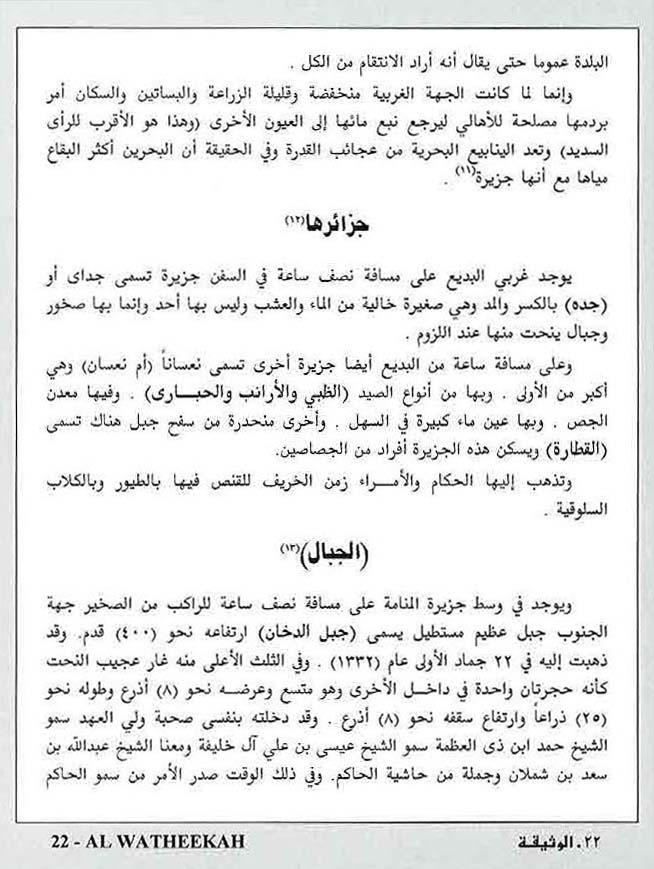 البلدة عموما حتى يقال أنه أراد الانتقام من الكل .
وإنما لما كانت الجهة الغربية منخفضة وقليلة الزراعة والبساتين والسكان أمر
بردمها مصلحة للأهالي ليرجع نبع مائها إلى العيون الأخرى (وهذا هو الأقرب للرأى
السديد) وتعد الينابيع البحرية من عجائب القدرة وفي الحقيقة أن البحرين أكثر البقاع
مياها مع أنها جزيرة(١١) .
جزائرها(١٢)
يوجد غربي البديع على مسافة نصف ساعة في السفن جزيرة تسمى جداى أو
(جده) بالكسر والمد وهي صغيرة خالية من الماء والعشب وليس بها أحد وإنما بها صخور
وجبال ينحت منها عند اللزوم .
وعلى مسافة ساعة من البديع أيضا جزيرة أخرى تسمى نعساناً (أم نعسان) وهي
أكبر من الأولى . وبها من أنواع الصيد (الظبي والأرانب والحبـارى) . وفيها معدن
الجص . وبها عين ماء كبيرة في السهل . وأخرى منحدرة من سفح جبل هناك تسمى
(القطارة) ويسكن هذه الجزيرة أفراد من الجصاصين.
وتذهب إليها الحكام والأمـراء زمن الخريف للقنص فيها بالطيور وبالكلاب
السلوقية .
(الجبال)(١٣)
ويوجد في وسط جزيرة المنامة على مسافة نصف ساعة للراكب من الصخير جهة
الجنوب جبل عظيم مستطيل يسمى (جبل الدخان) ارتفاعه نحو (٤٠٠) قدم. وقد
ذهبت إليه في ٢٢ جماد الأولى عام (١٣٣٢) . وفي الثلث الأعلى منه غار عجيب النحت
كأنه حجرتان واحدة في داخـل الأخرى وهو متسع وعرضـه نحو (٨) أذرع وطوله نحو
(٢٥) ذراعاً وارتفاع سقفه نحو (٨) أذرع . وقد دخلته بنفسى صحبة ولي العهد سمو
الشيخ حمد ابن ذى العظمة سمو الشيخ عيسى بن علي آل خليفة ومعنا الشيخ عبدالله بن
سعد بن شملان وجملة من حاشية الحاكم. وفي ذلك الوقت صدر الأمر من سمو الحاكم
22 - AL WATHEEKAH
٢٢ . الوثيقـة